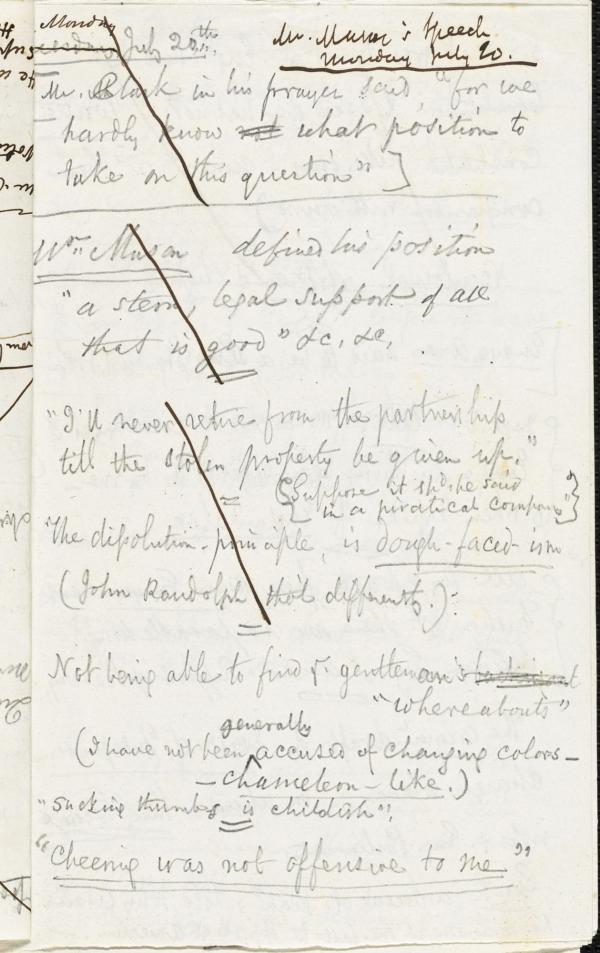 Monday
Tuesday July 20th.
Mr. Munro's Speech
Monday July 20.
Mr. Black in his prayer said "for we
hardly know not what position to
take on this question"]
Wm. Munro defined his position
"a stern, legal support of all
that is good" &c, &c,
"I'll never retire from the partnership
till the stolen property be given up."
{Suppose it shd. be said
in a piratical company"}
"The dissolution-principle, is dough-faced-ism
(John Randolph thot differently.)
Not being able to find ye gentleman's
"whereabouts"
generally
(I have not been accused of changing colors—
—chameleon-like.)
"sucking thumbs is childish".
"Cheering was not offensive to me"